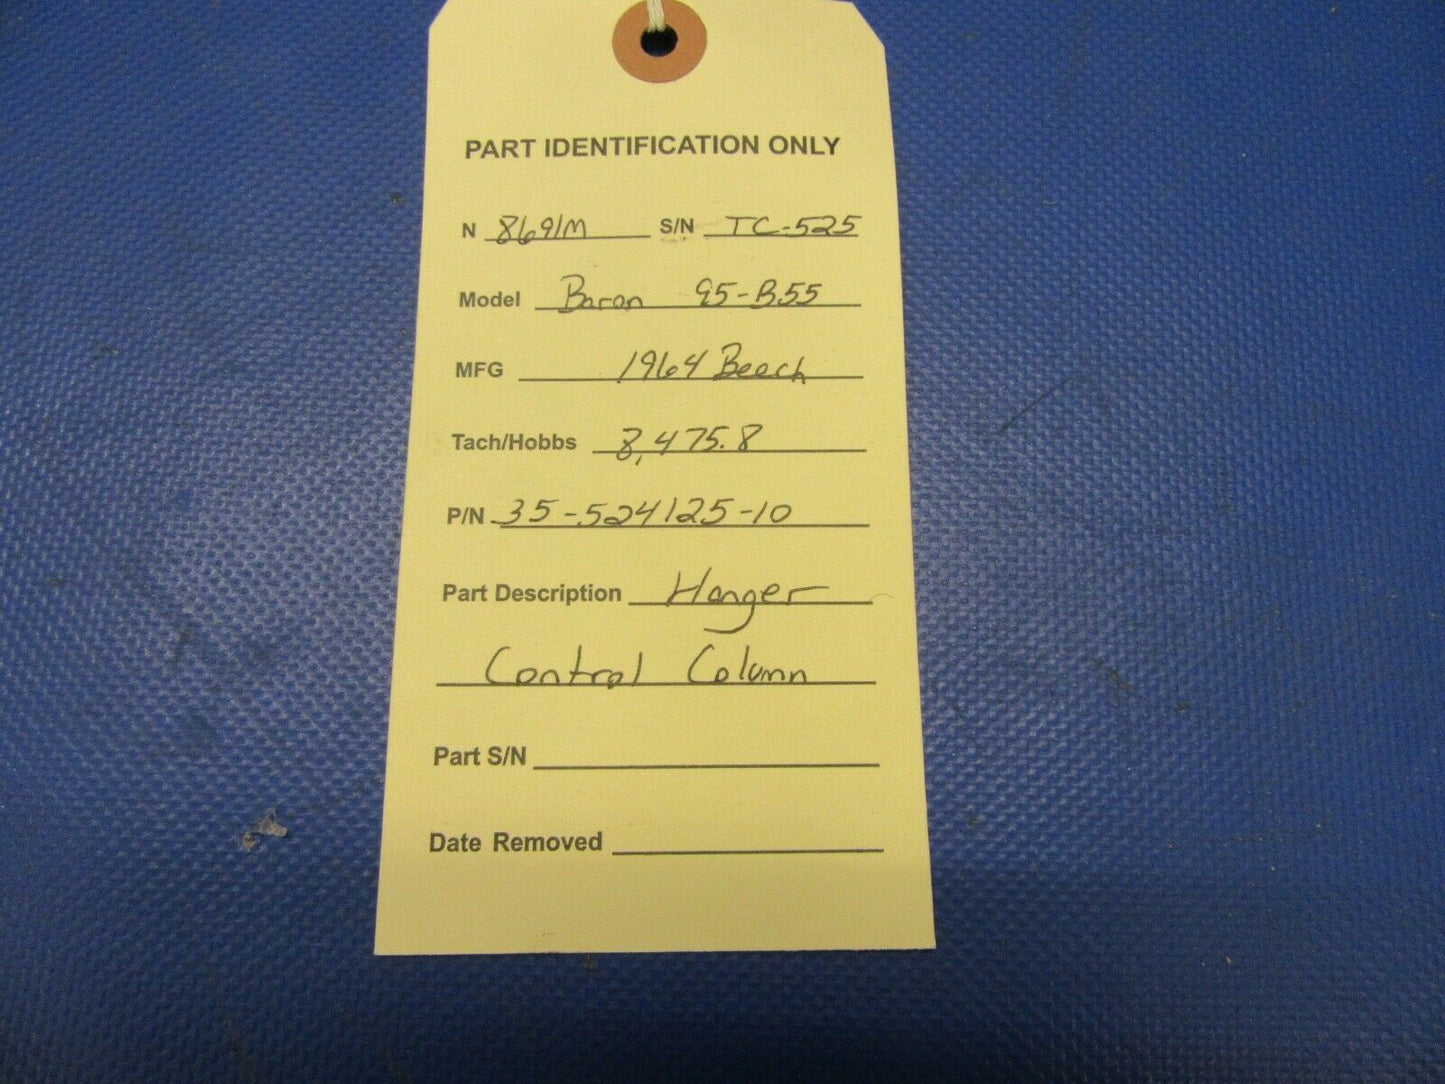 PART IDENTIFICATION ONLY
N 8691M S/N TC-525
Model Baron 95-B55
MFG 1964 Beech
Tach/Hobbs 8,475.8
P/N 35-524125-10
Part Description Hanger
Control Column
Part S/N
Date Removed